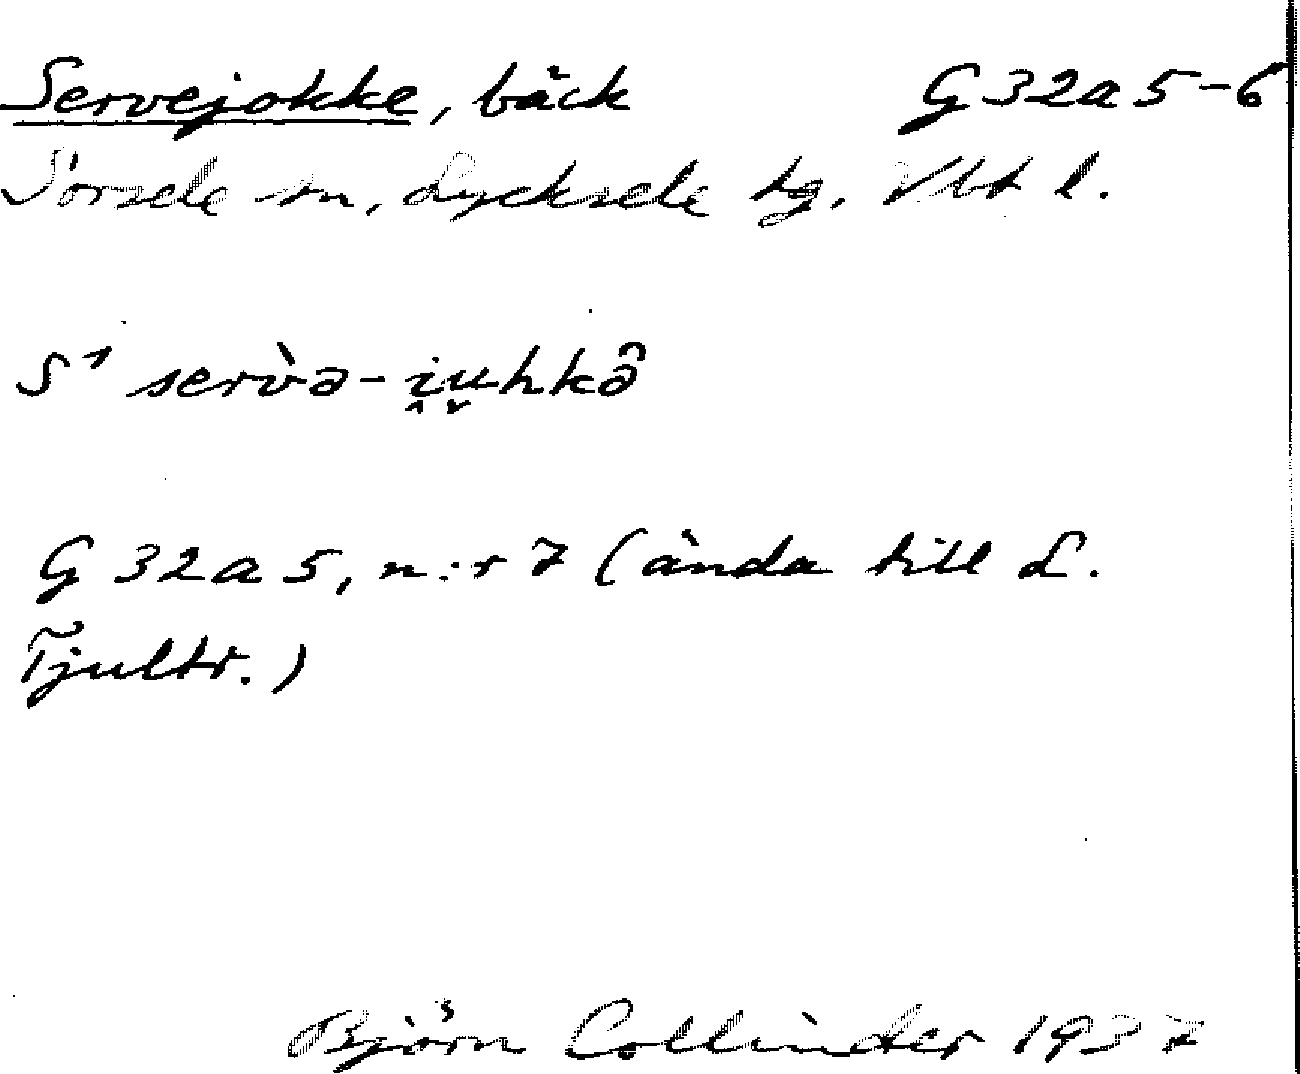 Servejokke, bäck G 32 a 5-6
Sorsele sn, Lycksele tg. Vbt l.
S¹ serv̀ə-i̭u̬hkə̂
G 32 a 5, n:r 7 (ända till L.
Tjultr.)
Björn Collinder 1937